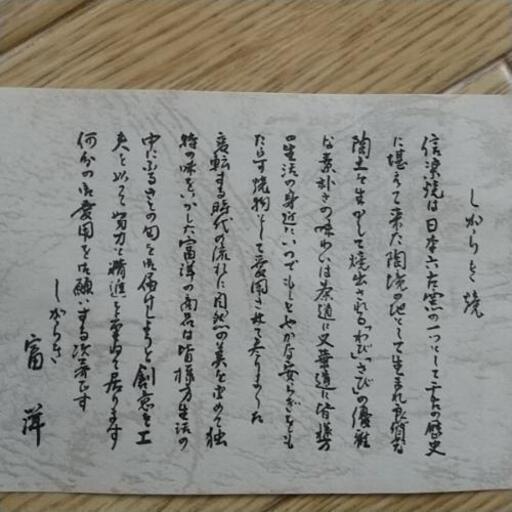 しがらき焼
信楽焼は日本六古窯の一つとして千古の歴史
に堪えて来た陶境の地として生まれ良質な
陶土を生かして焼出される「わび」「さび」の優雅
な素朴さの味わいは茶道に又華道に皆様の
生活の身近にいつでもしとやかな安らぎをも
たらす焼物として愛用されて参りました
変転する時代の流れに自然の美を求めて独
特の味をいかした富洋の商品は皆様方生活の
中にふるさとの匂をお届けしようと創意と工
夫を以って努力と精進を重ねて居ります
何分の御愛用を御願いする次第です
しがらき
富洋